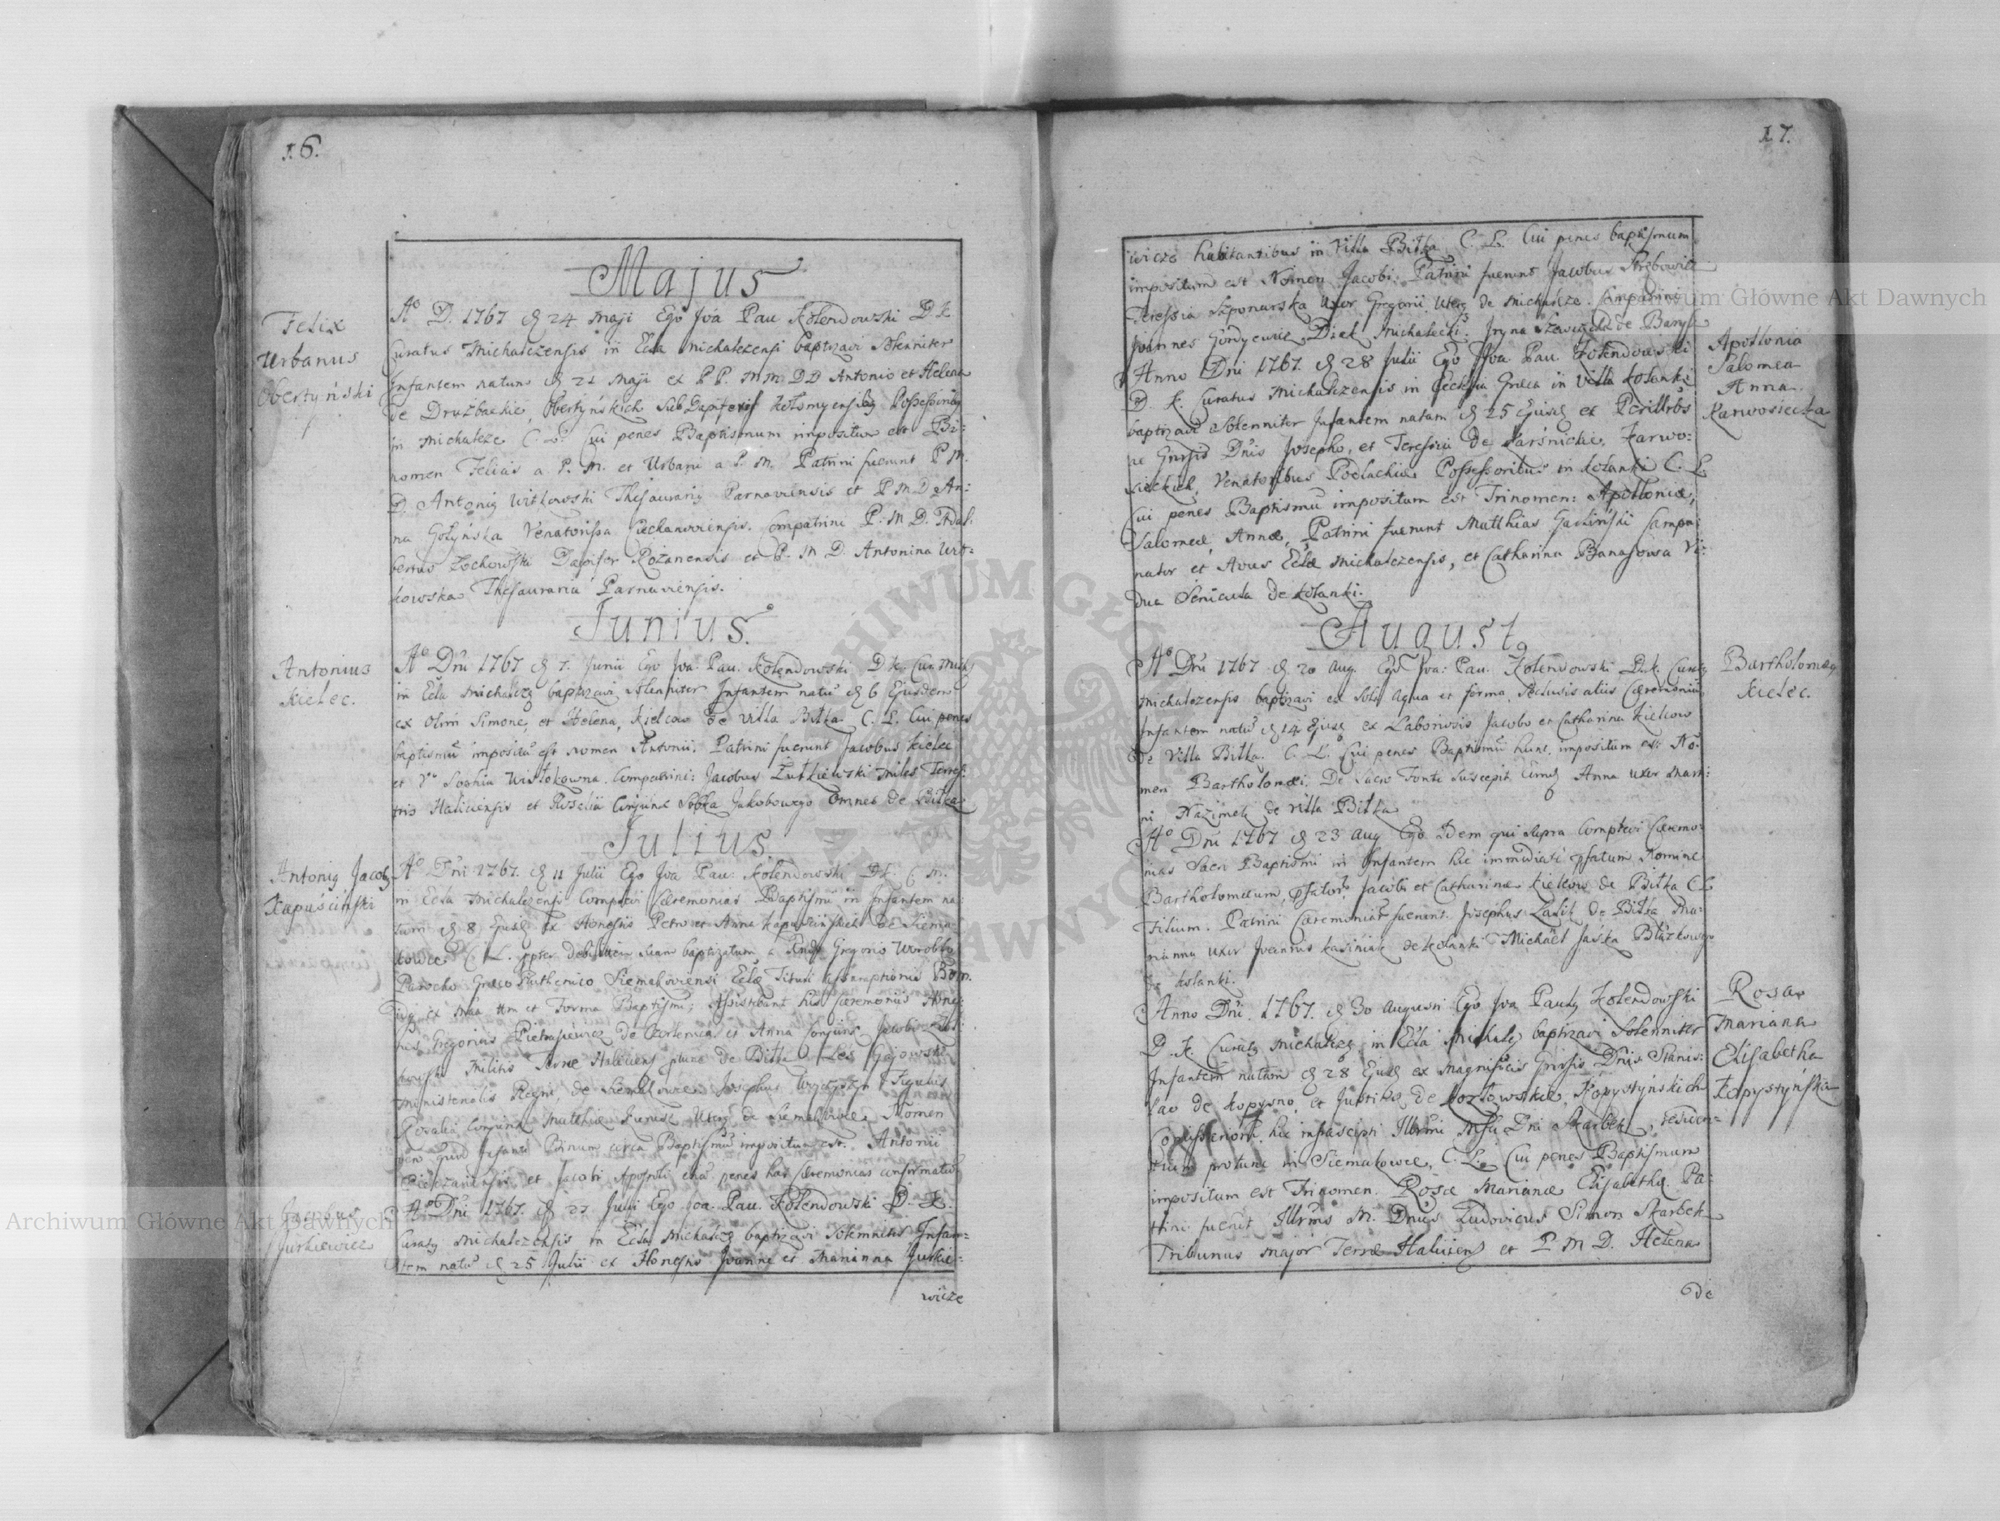 16.
Majus
Felix
Urbanus
Obertyński
Aº D. 1767 d 24 Maji Ego Joa Pau Kolendowski D. K.
Curatus Michalczensis in Ecla Michalczensi baptizavi Solenniter
Infantem natum d 21 Maji ex P P. M M. D D Antonio et Helena
de Družbackie, Obertyńskich SubDapiferis Kołomyensibg Possessoribg
in Michalcze C. L. Cui penes Baptismum impositum est Bi-
nomen Felicis a P. M. et Urbani a P. M. Patrini fuerunt P M.
D. Antonig Witkowski Thesaurarig Parnaviensis et P M D An-
na Gołyńska Venatorissa Ciechanoviensis. Compatrini P. M D. Adal-
bertus Żochowski Dapifer Rożanensis et P. M D. Antonina Wit-
kowska Thesauraria Parnaviensis.
Junius.
Antonius
Kielec.
Aº Dni 1767 d 7. Junii Ego Joa: Pau: Kolendowski D K. Cur Mich
in Ecla Michalczg baptizavi Solenniter Infantem natu d 6 Ejusdem
ex olim Simone, et Helena, Kielcow de Villa Bitka C. L. Cui penes
baptismu impositu est nomen Antonii. Patrini fuerunt Jacobus Kielec
et Vº Sophia Wisłokowna. Compatrini: Jacobus Żułkiewski Miles Terres-
tris Haliciensis et Rosalia Conjunx Sobka Jakobowego Omnes de Bitka
Julius.
Antonig Jacobg
Kapuściński
Aº Dni 1767. d 11 Julii Ego Joa Pau: Kolendowski D K. C M.
in Ecla Michalczensi Complevi Cæremonias Baptismi in Infantem na-
tum d 8 Ejusd ex Honestis Petro et Anna Kapuścińskich de Siema-
kowce C. L. ppter debilitatem suam baptizatum a Rndo Gregorio Worobko
Parocho Græco Ruthenico Siemakoviensi Eclæ Tituli Assumptionis B V M.
ex et Forma Baptismi; Assistebant his Cæremoniis Hones-
tus Gregorius Pietrasiewicz de et Anna Conjunx Jacobi
Militis Terræ Haliciens de Bitka
Ministerialis Regni, de Siemakowce Josephus Figulus
Rosalia Conjunx Matthiæ de Siemakowce Nomen
Infanti Binum circa Baptismu impositum est. Antonii
et Jacobi Apostoli penes has Cæremonias confirmatu
Jacobus
Jurkiewicz
Aº Dni 1767 d 27 Julii Ego Joa. Pau. Kolendowski D. K.
Curatg Michalczensis in Ecla Michalczg baptizavi Solemniter Infan-
tem natu d 25 Julii ex Honestis Joanne et Marianna Jurkie-
wicze
17.
wicze habitantibus in Villa Bitka C. L. Cui penes baptismum
impositum est Nomen Jacobi: Patrini fuerunt Jacobus Strębowicz
Teressia Szponarska Uxor Gregorii Uterg de Michalcze. Compatrini
Joannes Gordyewicz Diek Michalecki: Iryna Szewczycha de
Apollonia
Salomea
Anna
Karwosiecka
Anno Dni 1767. d 28 Julii Ego Joa Pau Kolendowski
D. K. Curatus Michalczensis in Ecclesia Græca in Villa Kolanki
baptizavi Solenniter Infantem natam d 25 Ejusd ex Perillrbs
ac Gnrsis Dnis Josepho, et Teressia de Larśnickie, Karwo-
sieckich, Venatoribus Podlachiæ Possessoribus in Kolanki C. L
Cui penes Baptismu impositum est Trinomen: Apolloniæ,
Salomeæ, Annæ, Patrini fuerunt Matthias Gasziński Campa-
nator et Avus Eclæ Michalczensis, et Catharina Banasiowa Vi-
dua Senicula de Kolanki.
Augustg
Bartholomæg
Kielec.
Aº Dni 1767 d 20 Aug Ego Joa: Pau. Kolendowski D. K. Curatg
Michalczensis baptizavi ex Sola aqua et forma Seclusis aliis Cæremoniis
Infantem natu d 14 Ejusd ex Laboriosis Jacobo et Catharina Kielcow
De Villa Bitka. C. L. Cui penes Baptismu hunc impositum est No-
men Bartholomæi. De Sacro Fonte Suscepit Eumd Anna Uxor Marti-
ni Kazimek de Villa Bitka
Aº Dni 1767 d 23 Aug Ego Idem qui Supra Complevi Cæremo-
nias Sacri Baptismi in Infantem hic immediate pfatum Nomine
Bartholomæum, pfator. Jacobi et Catharinæ Kielcow de Bitka C L
Filium. Patrini Cæremoniar fuerunt Josephus Lasik de Bitka Ma-
rianna Uxor Joannis Kasiniak de Kolanki Michaël Jaśka Blazkowego
de Kolanki.
Rosa
Mariana
Elisabetha
Kopystyńska
Anno Dni. 1767. d 30 Augusti Ego Joa Paulg Kolendowski
D. K. Curatg Michalczg in Ecla Michalcg baptizavi Solenniter
Infantem natam d 28 Ejusd ex Magnificis Gnrsis Dnis Stanis-
lao de Kopysno, et de Kozłowskie, Kopystyńskich
hic infrascripti Illrmi Mfci Dni Skarbek, residen-
tium protunc in Siemakowce, C. L. Cui penes Baptismum
impositum est Trinomen. Rosæ Marianæ Elisabethæ. Pa-
trini fuerut Illrmus M. Dnus Ludovicus Simon Skarbek
Tribunus Major Terræ Halicien et P M D. Helena
de
Archiwum Główne Akt Dawnych
Archiwum Główne Akt Dawnych
ARCHIWUM GŁÓWNE AKT DAWNYCH